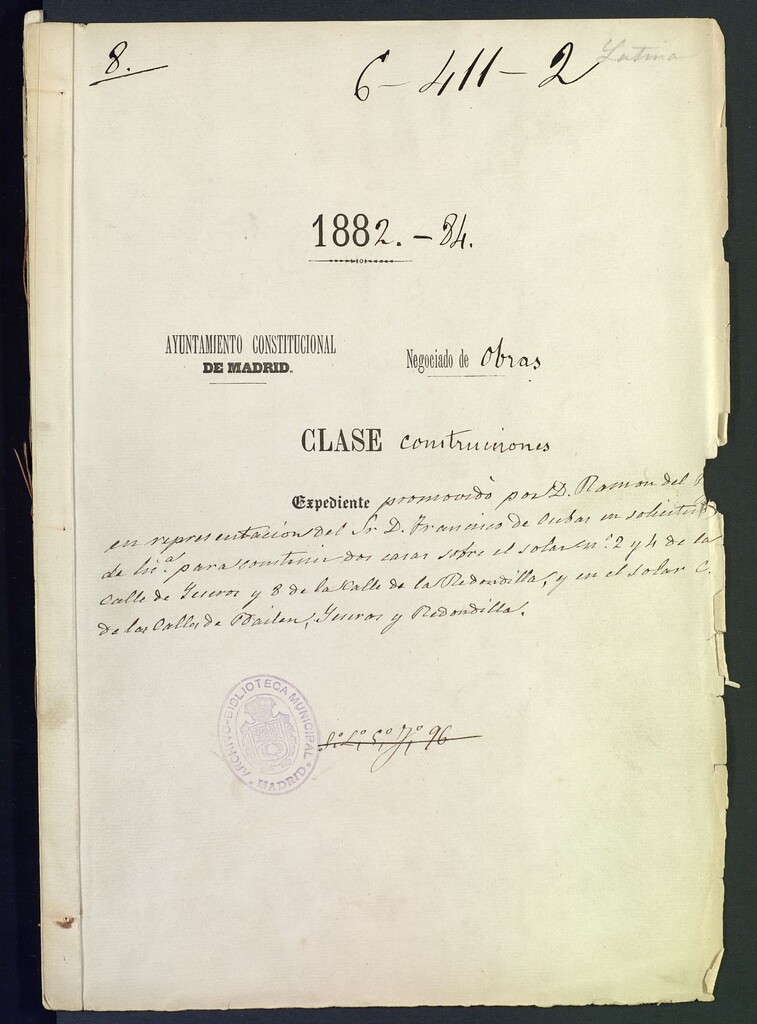 8.
6-411-2
Latina
1882.-84.
AYUNTAMIENTO CONSTITUCIONAL
DE MADRID.
Negociado de Obras
CLASE construciones
Expediente promovido por D. Ramon del
en representacion del Sr. D. Francisco de Cubas en solicitud
de lic.ª para construir dos casas sobre el solar n.º 2 y 4 de la
Calle de Yeseros y 8 de la Calle de la Redondilla, y en el solar C.
de las Calles de Bailen, Yeseros y Redondilla.
ARCHIVO-BIBLIOTECA MUNICIPAL
MADRID
96